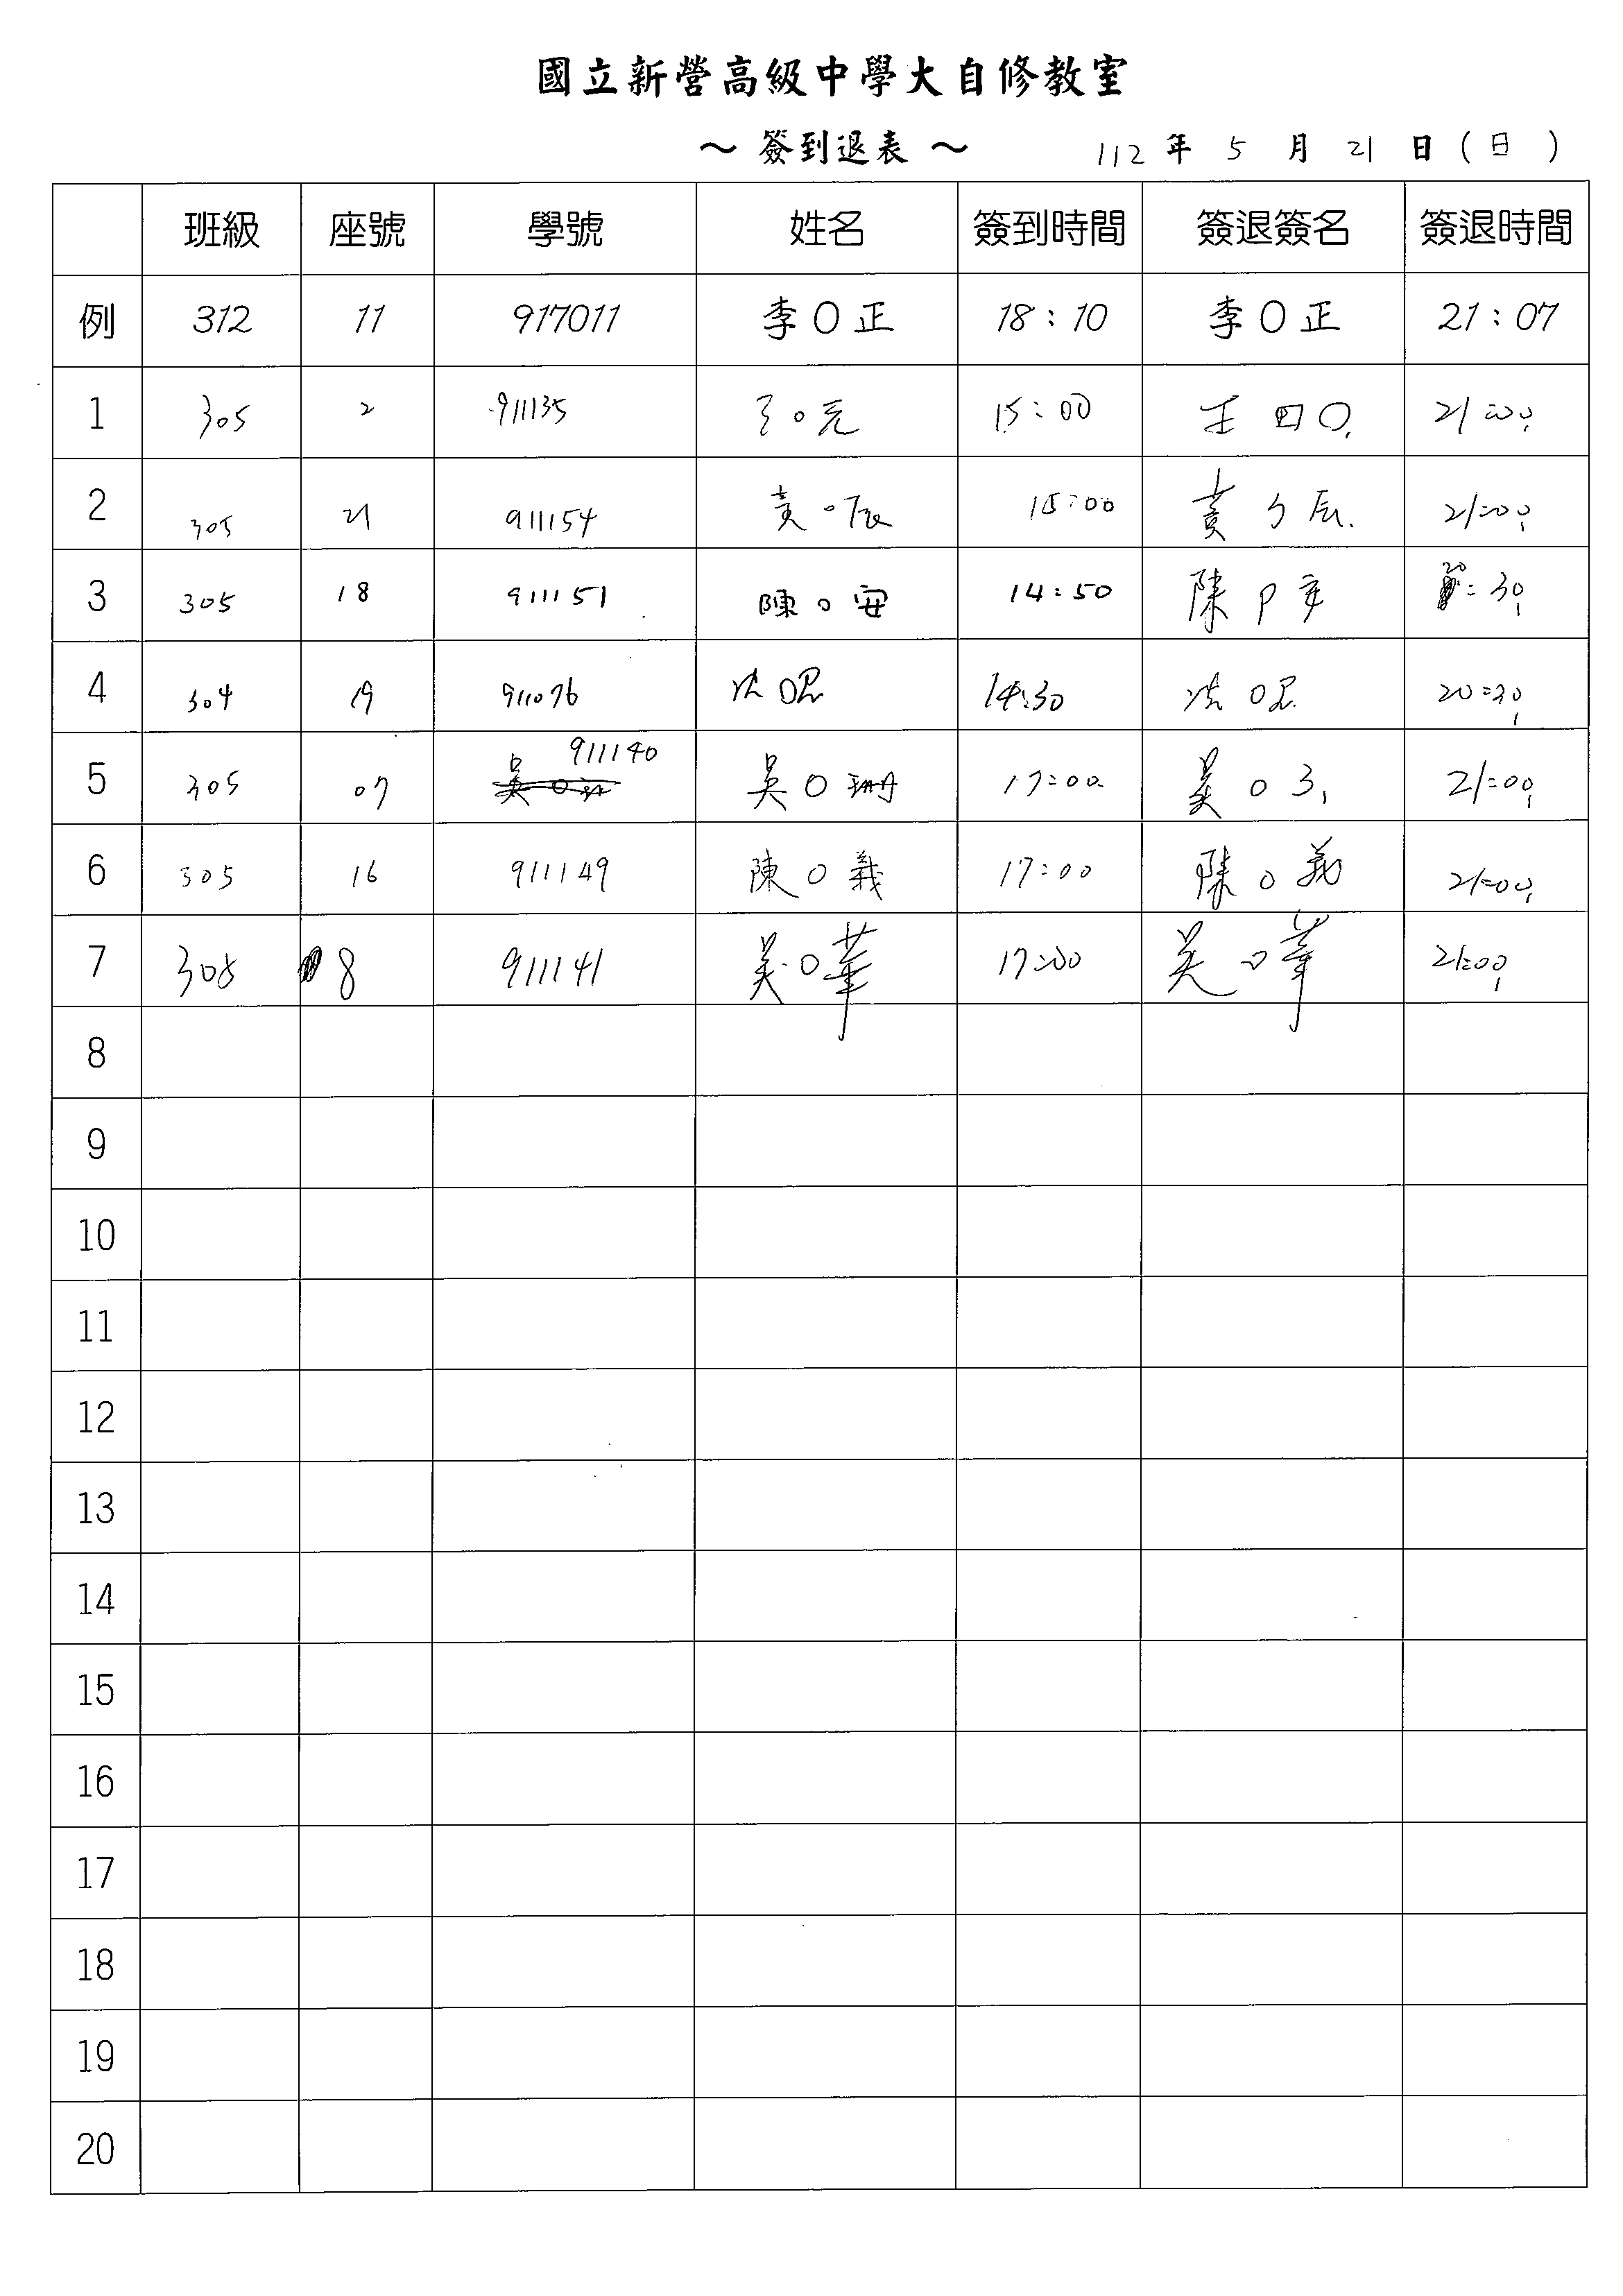 國立新營高級中學大自修教室
～ 簽到退表 ～ 112 年 5 月 21 日 ( 日 )
班級 座號 學號 姓名 簽到時間 簽退簽名 簽退時間
例 312 11 917011 李O正 18:10 李O正 21:07
1 305 2 911135 O元 15:00 王 21:00
2 305 21 911154 黃O辰 15:00 黃 辰 21:00
3 305 18 911151 陳O安 14:50 陳 安 20:30
4 304 19 911076 O 14:30 O 20:30
5 305 07 911140 吳O珊 17:00 吳O 21:00
6 305 16 911149 陳O義 17:00 陳O義 21:00
7 305 8 911141 吳O華 17:00 吳O華 21:00
8
9
10
11
12
13
14
15
16
17
18
19
20